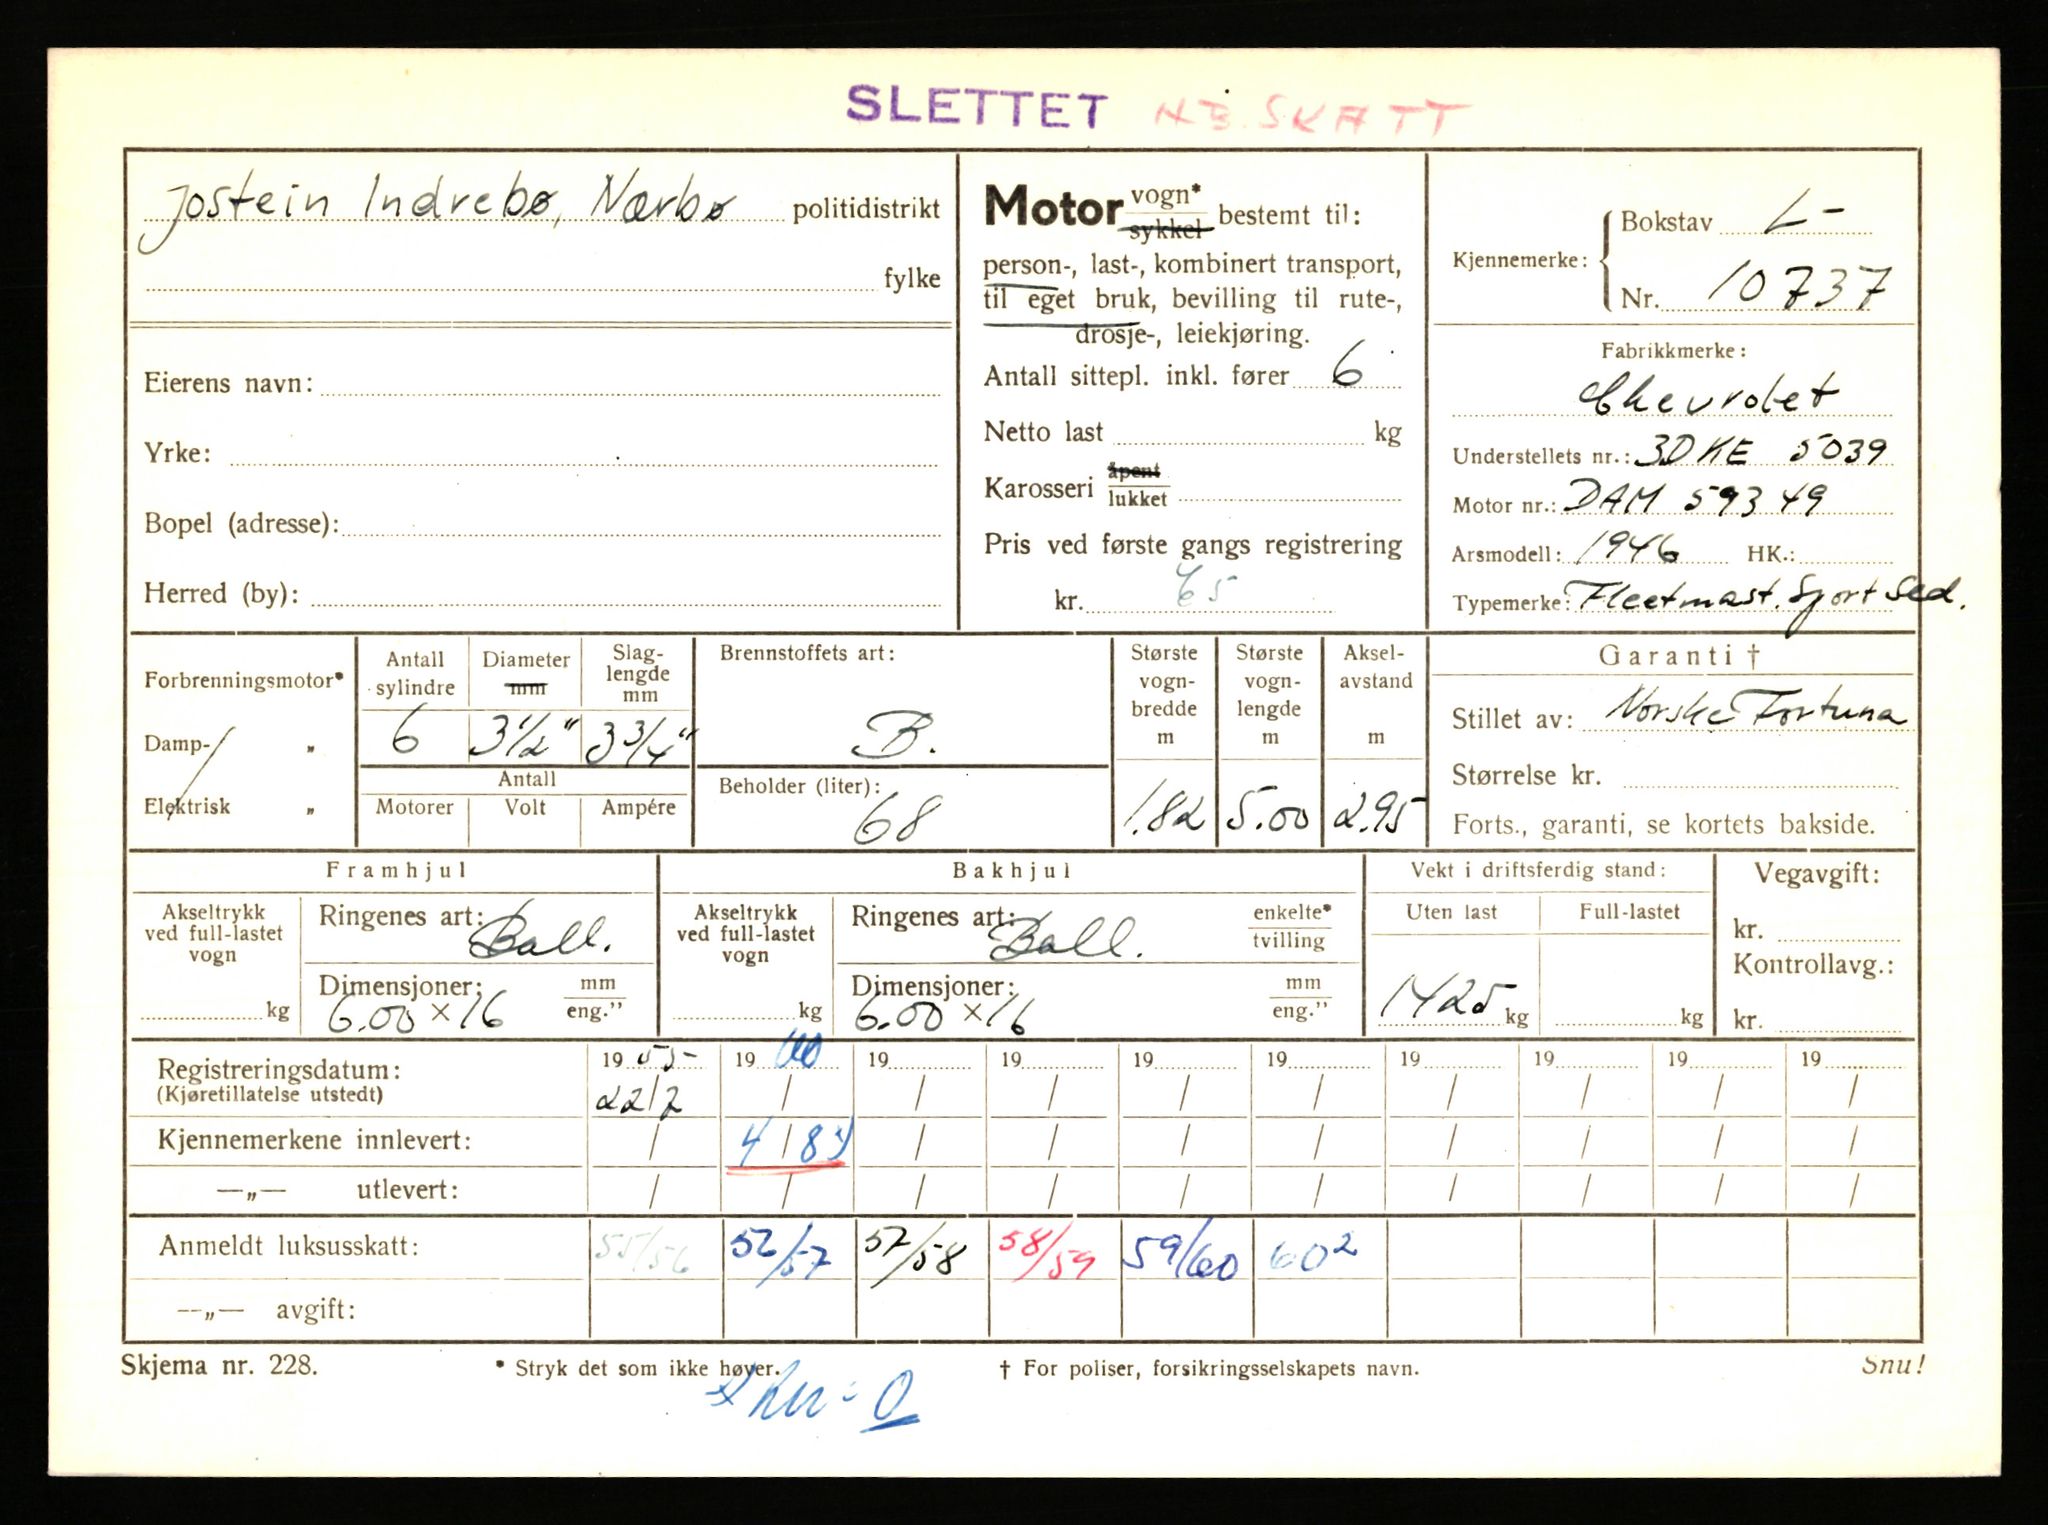 SLETTET NB. SKATT
Jostein Indrebø, Nærbø politidistrikt
fylke
Eierens navn:
Yrke:
Bopel (adresse):
Herred (by):
Motor vogn* sykkel bestemt til:
person-, last-, kombinert transport,
til eget bruk, bevilling til rute-,
drosje-, leiekjøring.
Antall sittepl. inkl. fører 6
Netto last kg
Karosseri åpent lukket
Pris ved første gangs registrering
kr. 65
Kjennemerke: Bokstav L-
Nr. 10737
Fabrikkmerke:
Chevrolet
Understellets nr.: 3DKE 5039
Motor nr.: DAM 59349
Arsmodell: 1946 HK.:
Typemerke: Fleetmast. Sport Sed.
Forbrenningsmotor*
Damp- „
Elektrisk „
Antall sylindre 6
Diameter mm 3 1/2"
Slag-
lengde
mm
3 3/4"
Antall
Motorer Volt Ampére
Brennstoffets art:
B.
Beholder (liter):
68
Største
vogn-
bredde
m
1.82
Største
vogn-
lengde
m
5.00
Aksel-
avstand
m
2.95
Garanti †
Stillet av: Norske Fortuna
Størrelse kr.
Forts., garanti, se kortets bakside.
Framhjul
Akseltrykk
ved full-lastet
vogn
kg
Ringenes art: Ball.
Dimensjoner: mm
6.00 × 16 eng.”
Bakhjul
Akseltrykk
ved full-lastet
vogn
kg
Ringenes art: Ball. enkelte* tvilling
Dimensjoner: mm
6.00 × 16 eng.”
Vekt i driftsferdig stand:
Uten last Full-lastet
1425 kg kg
Vegavgift:
kr.
Kontrollavg.:
kr.
Registreringsdatum: 19 55 19 60 19 19 19 19 19 19 19 19
(Kjøretillatelse utstedt) 22/2 / / / / / / / / /
Kjennemerkene innlevert: / 4/8 x) / / / / / / / /
—„— utlevert: / / / / / / / / / /
Anmeldt luksusskatt: 55/56 52/57 57/58 58/59 59/60 60²
—„— avgift:
Skjema nr. 228. * Stryk det som ikke høver. † For poliser, forsikringsselskapets navn. Snu!